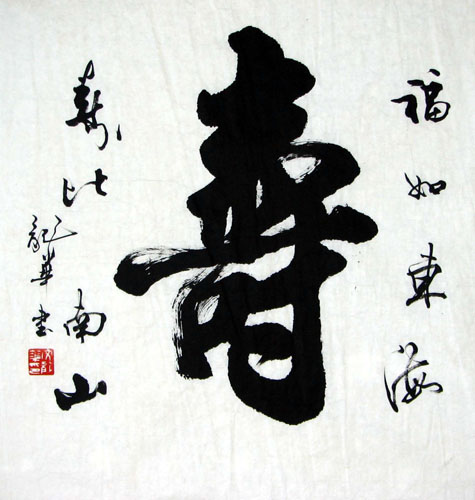 福如東海
壽
寿比南山
龍華書